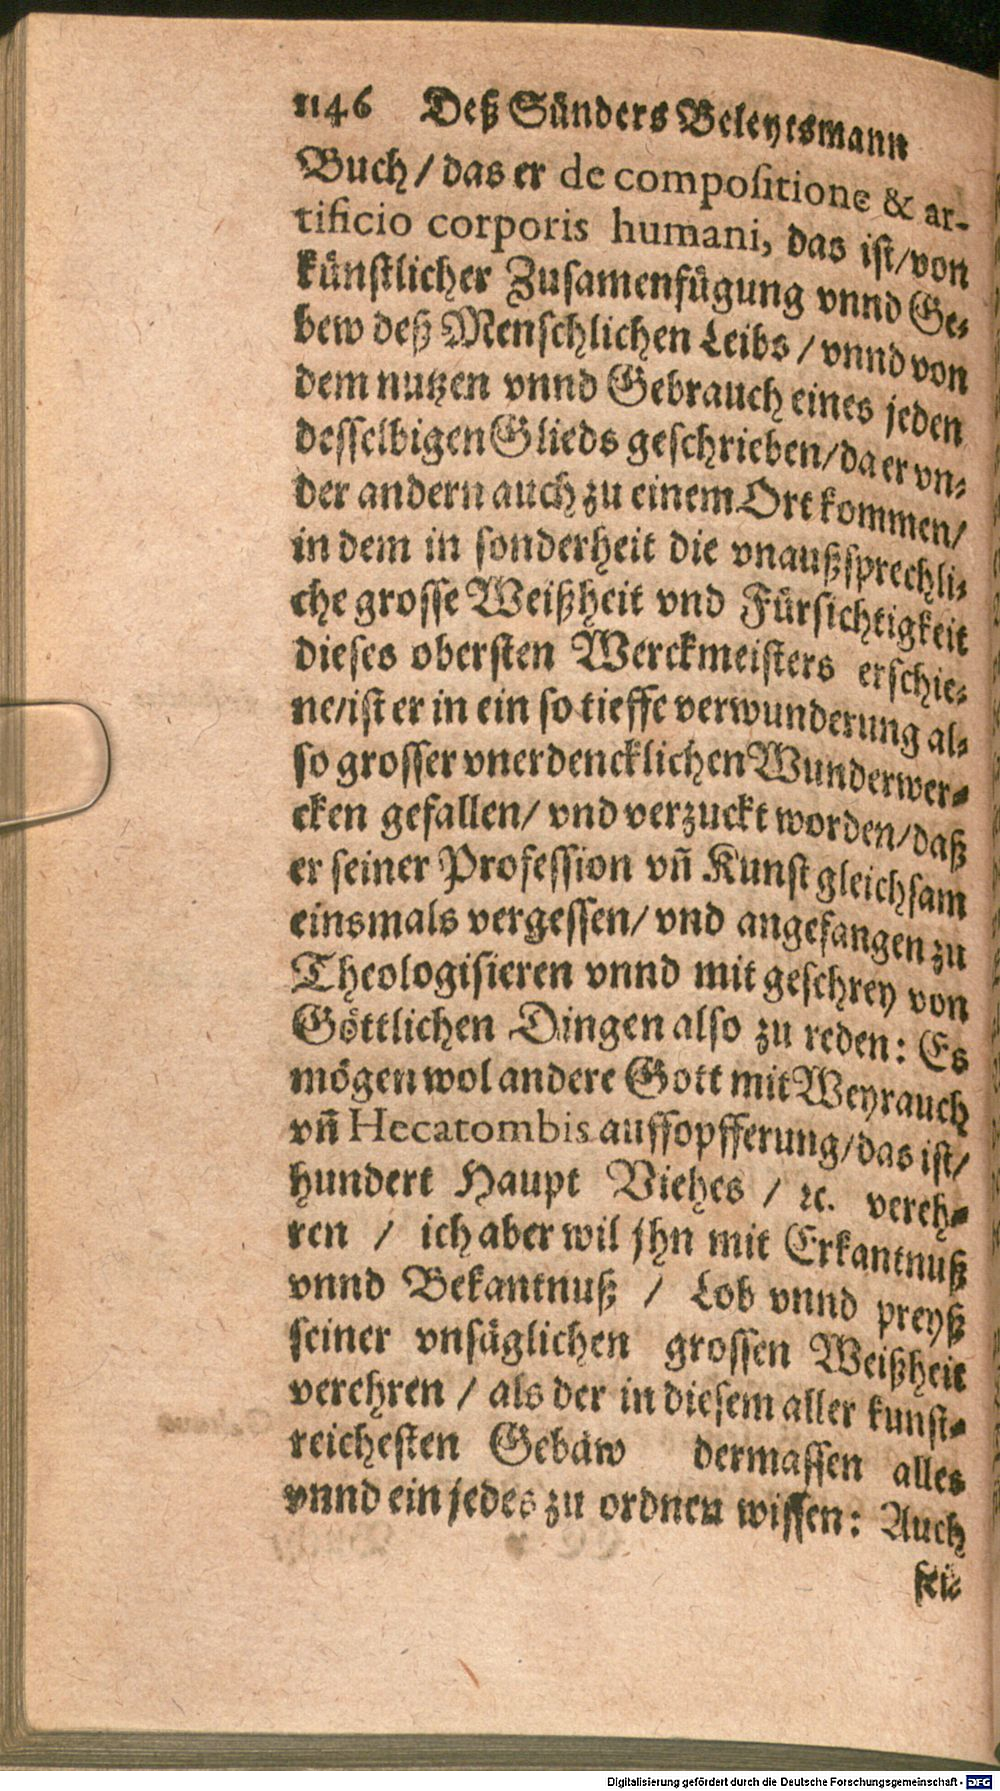 1146 Deß Sünders Beleytsmann
Buch / das er de compositione & ar-
tificio corporis humani, das ist/von
künstlicher Zusamenfügung vnnd Ge-
bew deß Menschlichen Leibs / vnnd von
dem nutzen vnnd Gebrauch eines jeden
desselbigen Glieds geschrieben/da er vn-
der andern auch zu einem Ort kommen/
in dem in sonderheit die vnaußsprechli-
che grosse Weißheit vnd Fürsichtigkeit
dieses obersten Werckmeisters erschie-
ne/ist er in ein so tieffe verwunderung al-
so grosser vnerdencklichen Wunderwer-
cken gefallen/ vnd verzuckt worden/daß
er seiner Profession vñ Kunst gleichsam
einsmals vergessen/ vnd angefangen zu
Theologisieren vnnd mit geschrey von
Göttlichen Dingen also zu reden: Es
mögen wol andere Gott mit Weyrauch
vñ Hecatombis auffopfferung/das ist/
hundert Haupt Viehes / ꝛc. vereh-
ren / ich aber wil jhn mit Erkantnuß
vnnd Bekantnuß / Lob vnnd preyß
seiner vnsäglichen grossen Weißheit
verehren / als der in diesem aller kunst-
reichesten Gebäw dermassen alles
vnnd ein jedes zu ordnen wissen: Auch
sei-
Digitalisierung gefördert durch die Deutsche Forschungsgemeinschaft - DFG